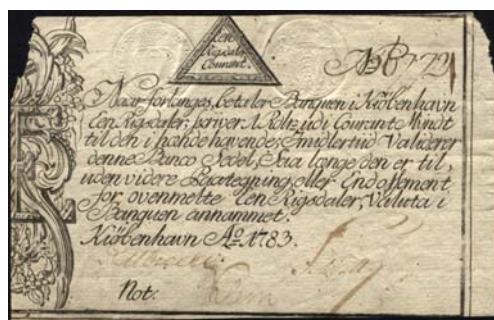 Een
Rigsdaler
Courant.
No 8772
Naar forlanges, betaler Banquen i Kiøbenhavn
Een Rigsdaler, skriver 1 Rdlr. udi Courant Myndt
til den i hænde havende; Imidlertid Validerer
denne Banco Sedel, Saa længe den er til,
uden videre Paategning eller Endossement
for ovenmelte Een Rigsdaler, Valuta i
Banquen annammet.
Kiøbenhavn Ao. 1783.
Not: